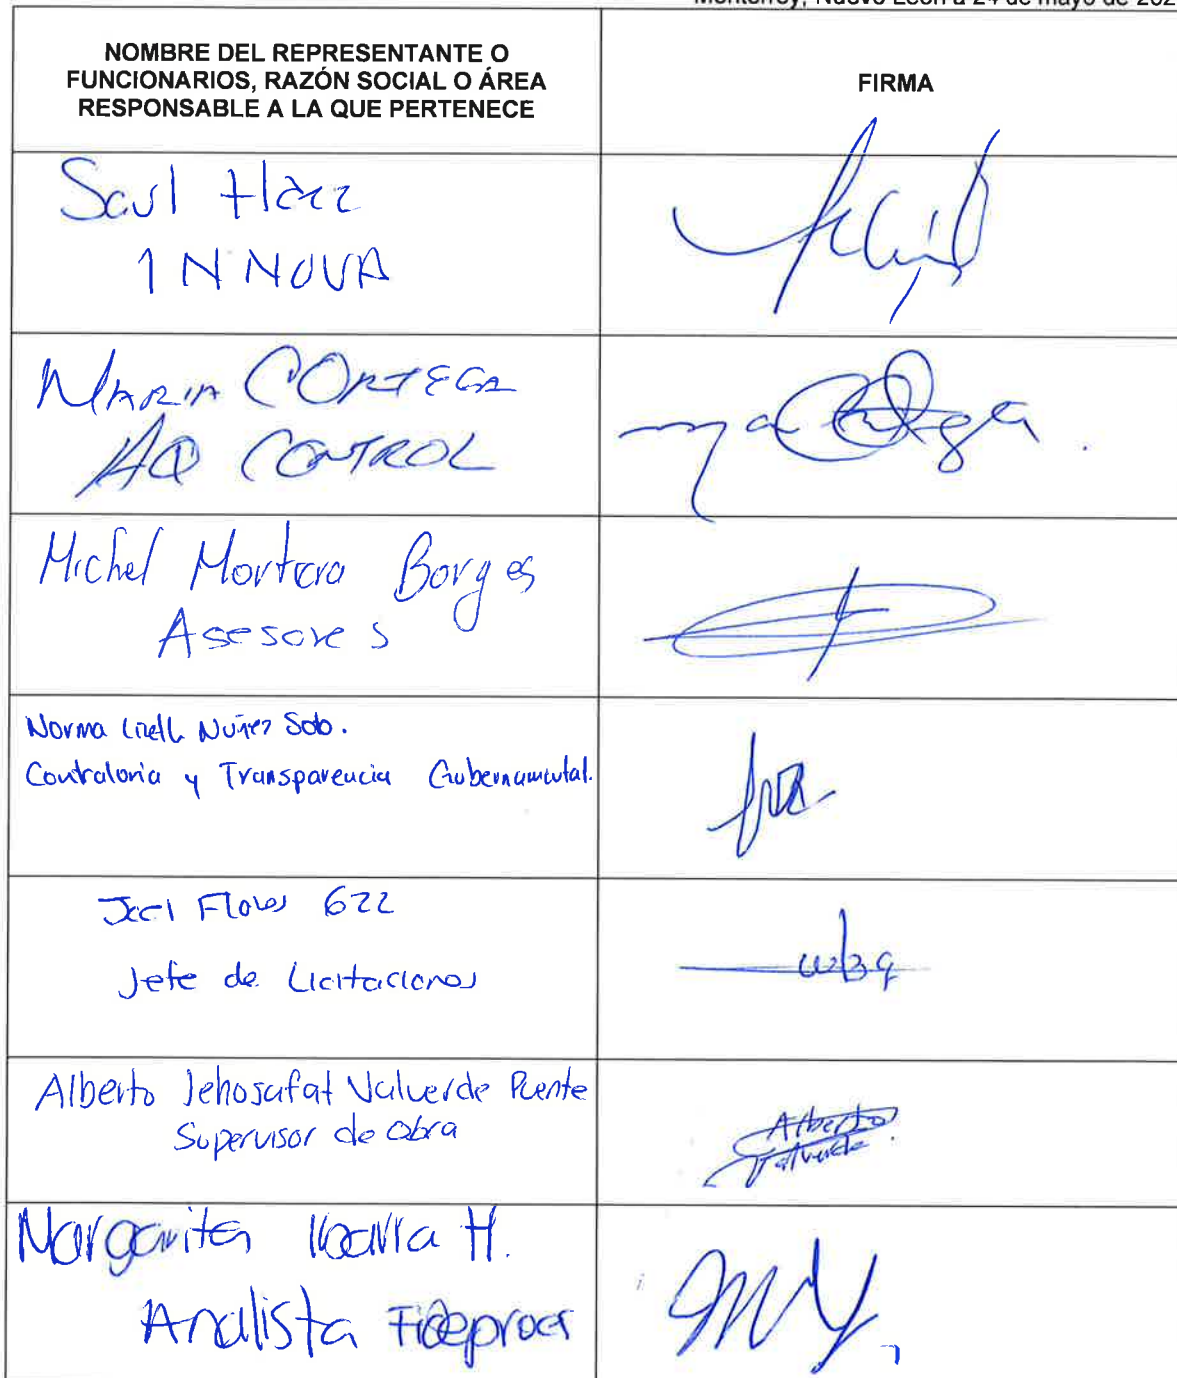 Monterrey, Nuevo León a 24 de mayo de 202
NOMBRE DEL REPRESENTANTE O
FUNCIONARIOS, RAZÓN SOCIAL O ÁREA
RESPONSABLE A LA QUE PERTENECE
FIRMA
Saul
INNOVA
MARIA C ORTEGA
AQ CONTROL
Michel Mortera Borges
Asesores
Norma Nuñez
Contraloria y Transparencia Gubernamental.
Flores
Jefe de Licitaciones
Alberto Jehosafat Valverde Puente
Supervisor de obra
Alberto
Valverde
Margarita Ibarra H.
Analista Fideproes